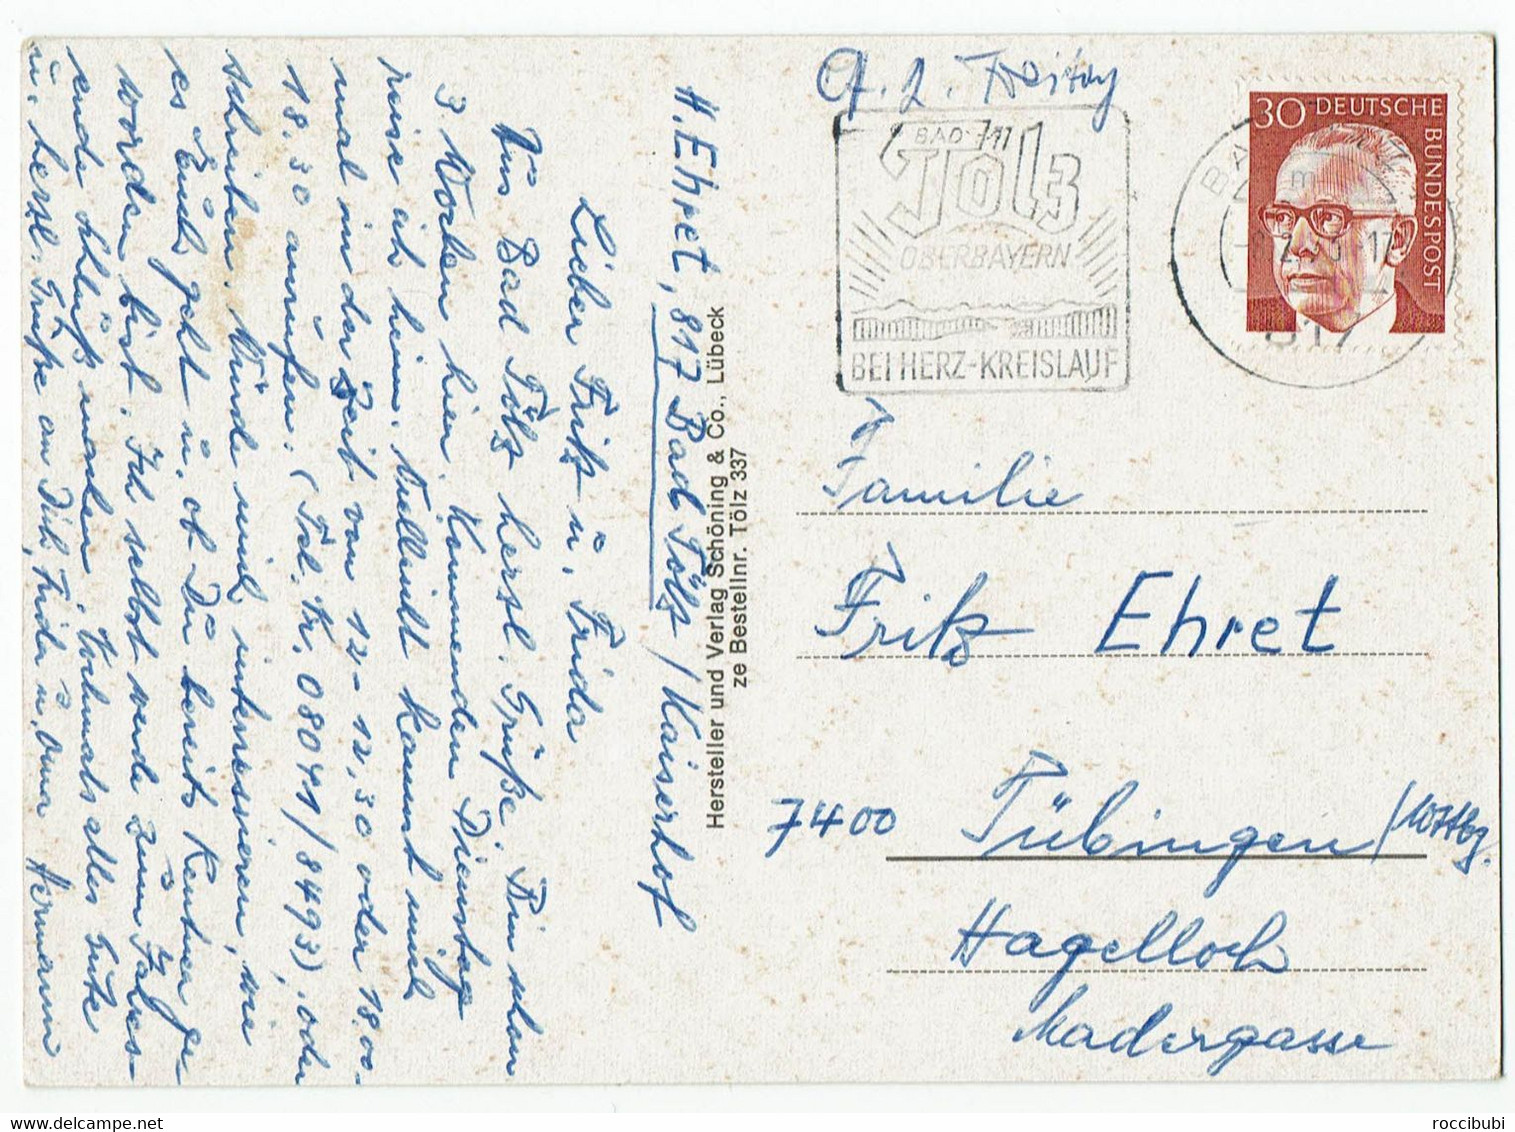 H. Ehret, 817 Bad Tölz / Kaiserhof
Lieber Fritz u. Frida
Aus Bad Tölz herzl. Grüße. Bin schon
3 Wochen hier. Kommenden Dienstag
reise ich heim. Vielleicht kannst mich
mal in der Zeit von 12 - 12.30 oder 18.00-
18.30 anrufen. (Tel. Nr. 08041/8493), oder
schreiben. Würde mich interessieren, wie
es Euch geht u. ob Du bereits Rentner ge-
worden bist. Ich selbst werde zum Jahres-
ende Schluß machen. Nochmals alles Gute
u. herzl. Grüße an Dich, Frida u. Oma Hermann
Hersteller und Verlag Schöning & Co., Lübeck
ze Bestellnr. Tölz 337
9.2. Freitag
BAD
Tölz
OBERBAYERN
BEI HERZ-KREISLAUF
30 DEUTSCHE
BUNDESPOST
817
Familie
Fritz Ehret
7400 Tübingen /
Hagelloch
Madergasse
roccibubi